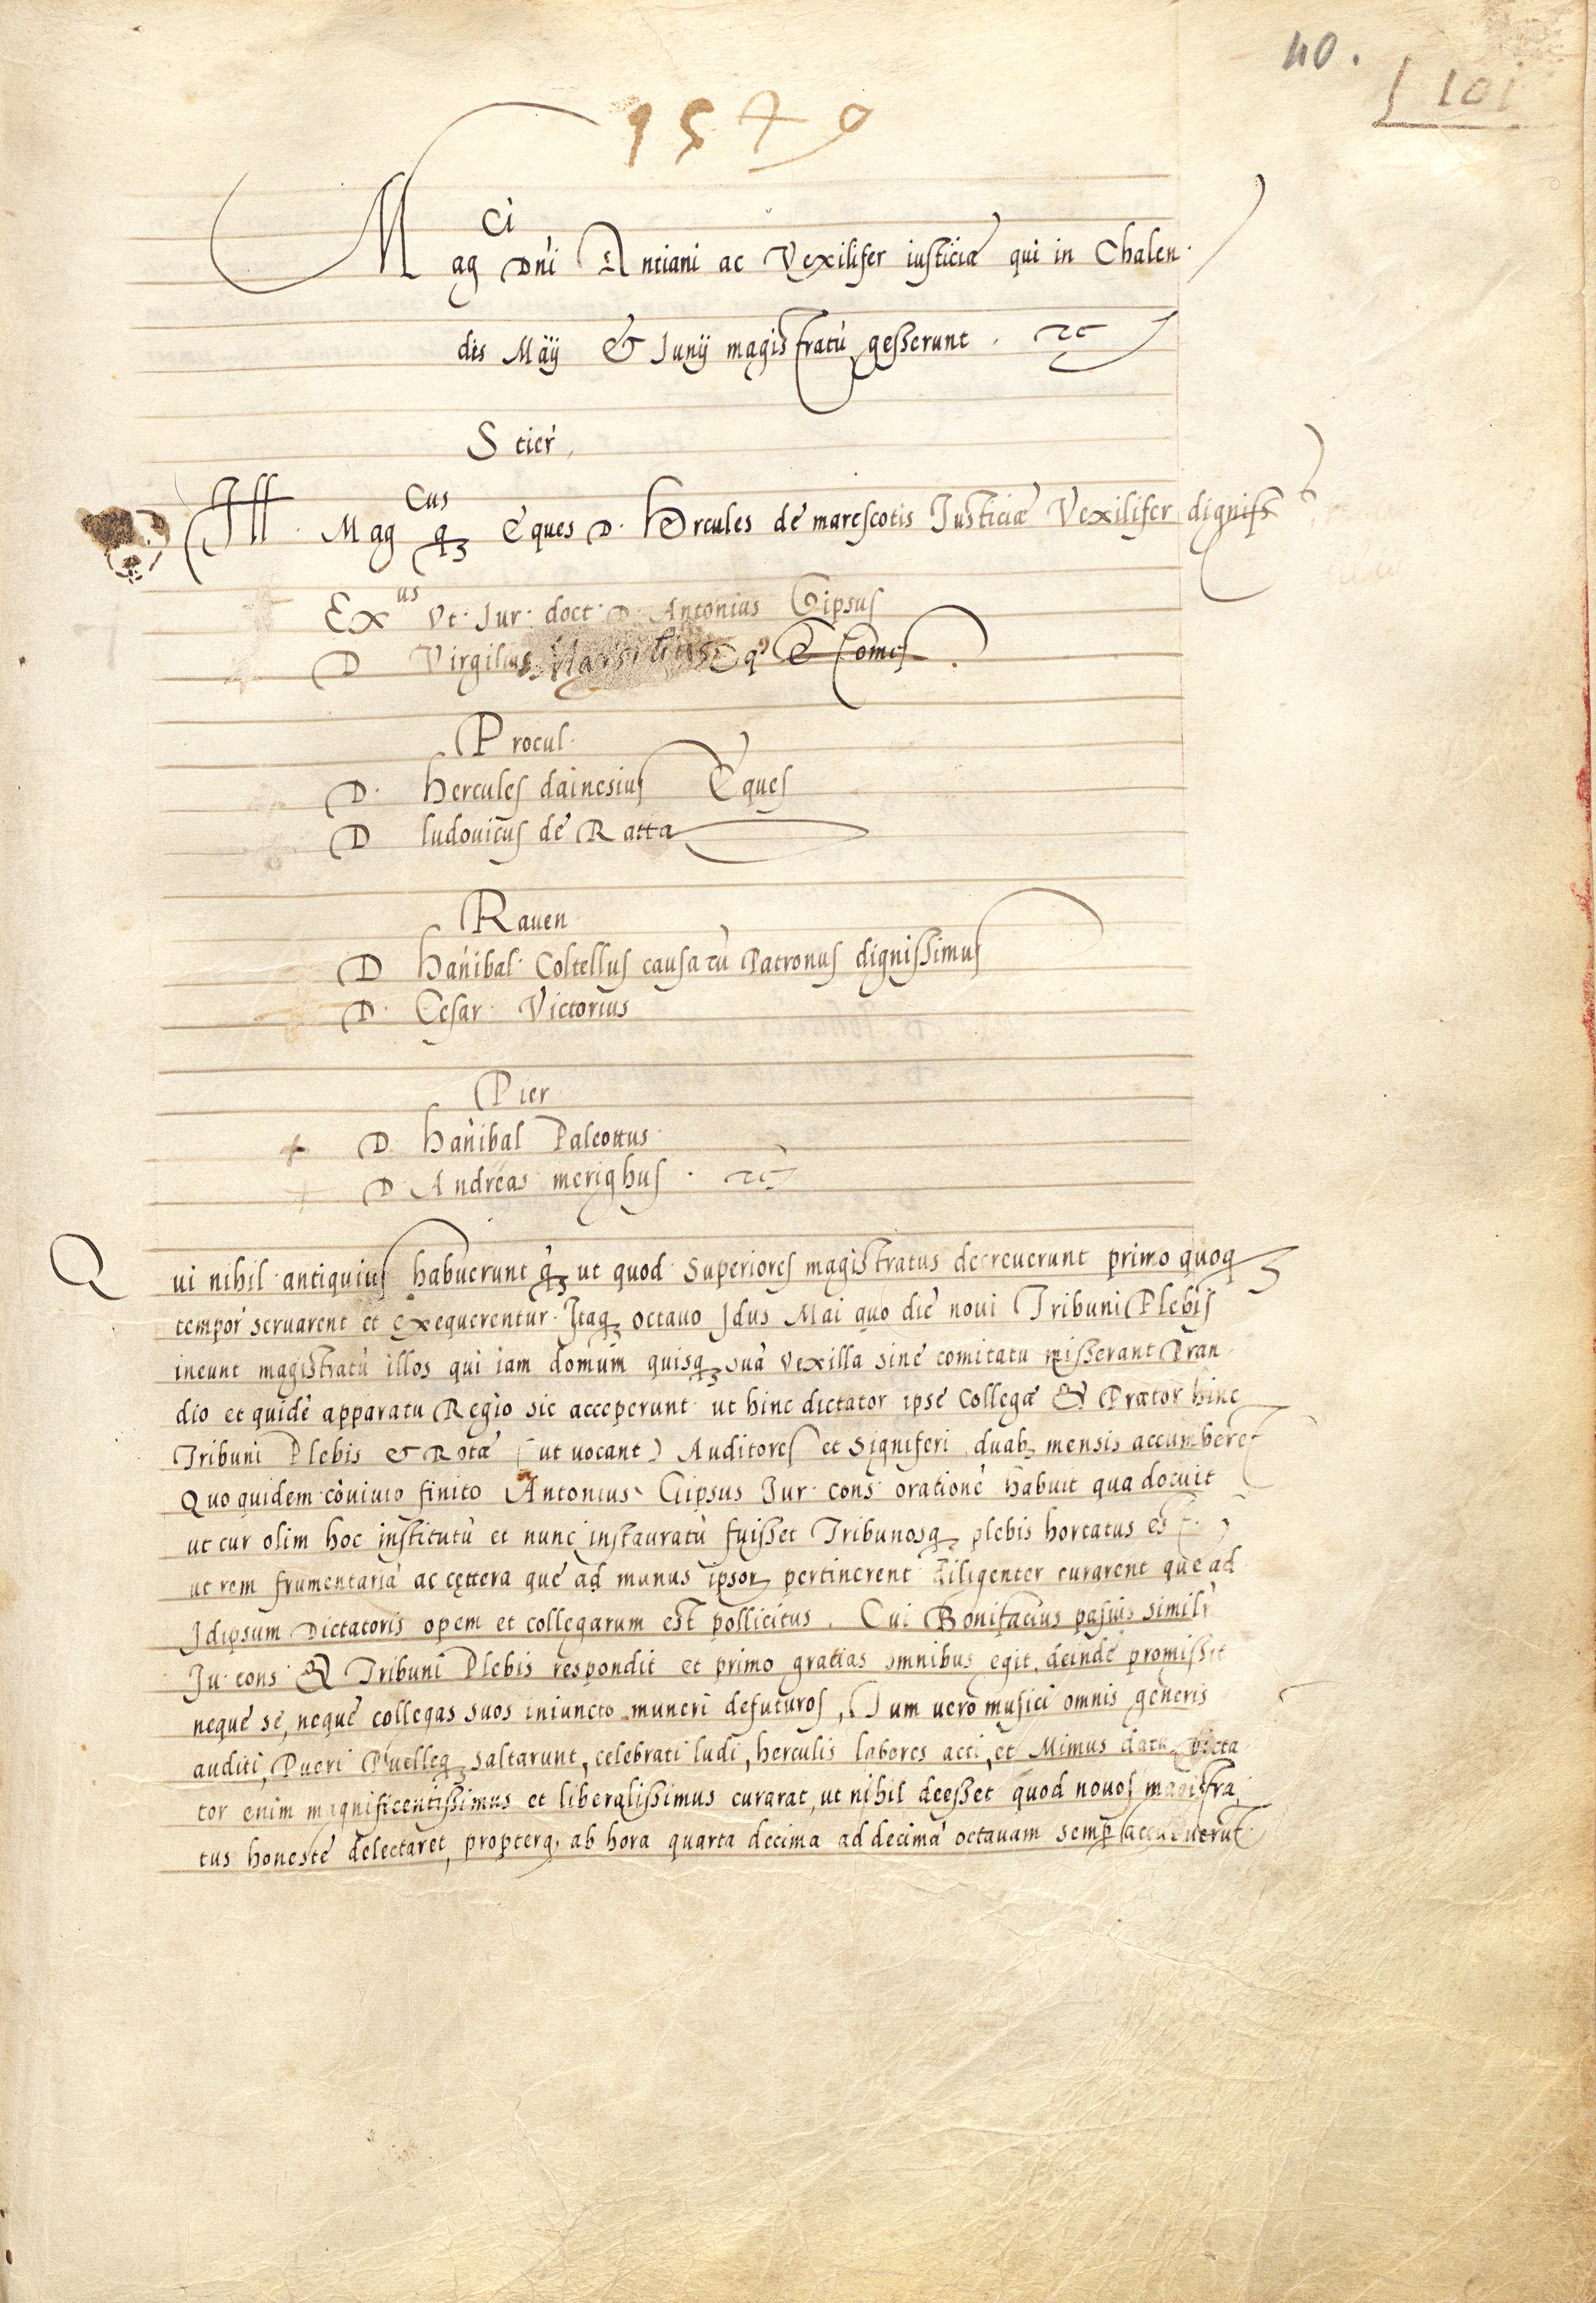 40.
101
1540
Mag^ci Dñi Antiani ac Vexilifer iusticiæ qui in Chalen·
dis Maÿ & Junÿ magistratũ gesserunt .
S tier
Ill. Mag^cus q; Eques D. Hercules de marescotis Justiciæ Vexilifer digniss
Ex^us Vt· Iur· doct· D. Antonius Gipsus
D Virgilius Marsilius Eq^s & Comes
Procul·
D· Hercules dainesius Eques
D ludouicus de Ratta
Rauen
D Hañibal· Coltellus causarũ Patronus dignissimus
D· Cesar· Victorius
Pier
D Hañibal Paleottus
D· Andreas merighus ·
Qui nihil antiquius habuerunt q̃; ut quod Superiores magistratus decreuerunt primo quoq;
tempor seruarent et exequerentur· Itaq; octauo Idus Mai quo die noui Tribuni Plebis
ineunt magistratũ illos qui iam domum quisq; suã vexilla sine comitatu misserant Pran
dio et quidẽ apparatu Regio sic acceperunt ut hinc dictator ipse Collegæ & Prætor hinc
Tribuni Plebis & Rotæ (ut uocant) Auditores et Signiferi duab; mensis accumberet
Quo quidem cõuiuio finito Antonius Gipsus Iur· cons· orationẽ habuit qua docuit
ut cur olim hoc institutũ et nunc instauratũ fuisset Tribunosq; plebis hortatus est
ut rem frumentariã ac cęttera que ad munus ipsor; pertinerent diligenter curarent que ad
Idipsum Dictatoris opem et collegarum est pollicitus . Cui Bonifacius pasius simili
Ju· cons· & Tribuni Plebis respondit et primo gratias omnibus egit, deinde promissit
neque se, neque collegas suos iniuncto muneri defuturos, Tum uero musici omnis generis
auditi, Pueri Puelleq; saltarunt, celebrati ludi, herculis labores acti, et Mimus Dicta
tor enim magnificentissimus et liberalissimus curarat, ut nihil deesset quod nouos magistra
tus honeste delectaret, propterq; ab hora quarta decima ad decimã octauam semp